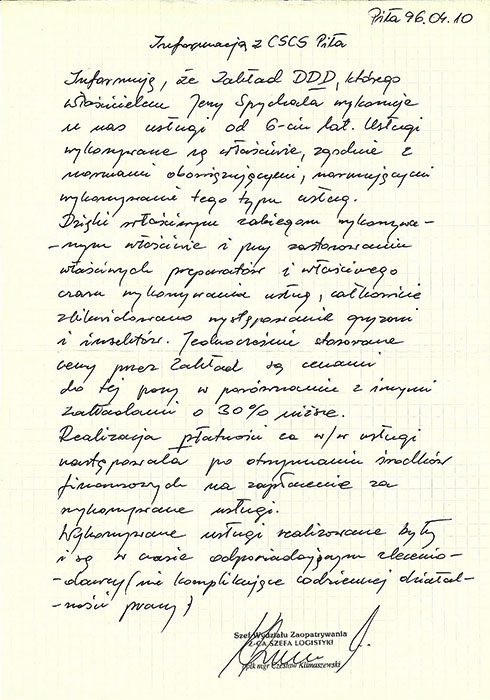 Piła 96.04.10
Informacja z CSCS Piła
Informuję, że Zakład DDD, którego
właścicielem Jerzy Spychała wykonuje
u nas usługi od 6-ciu lat. Usługi
wykonywane są właściwie, zgodnie z
normami obowiązującymi, normującymi
wykonywanie tego typu usług.
Dzięki właściwym zabiegom wykonywa-
-nym właściwie i przy zastosowaniu
właściwych preparatów i właściwego
czasu wykonywania usług, całkowicie
zlikwidowano występowanie gryzoni
i insektów. Jednocześnie stosowane
ceny przez Zakład są cenami
do tej pory w porównaniu z innymi
zakładami o 30% niższe.
Realizacja płatności za w/w usługi
następowała po otrzymaniu środków
finansowych na zapłacenie za
wykonywane usługi.
Wykonywane usługi realizowane były
i są w czasie odpowiadającym zlecenio-
-dawcy (nie komplikujące codziennej działal-
-ności pracy)
Szef Wydziału Zaopatrywania
Z-CA SZEFA LOGISTYKI
ppłk mgr Czesław Klimaszewski